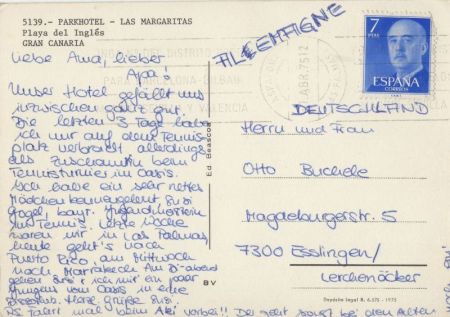 5139.- PARKHOTEL - LAS MARGARITAS
Playa del Inglés
GRAN CANARIA
ALLEMAIGNE
ABR. 75 12
7
PTAS
ESPAÑA
CORREOS
Liebe Ama, lieber
Apa!
Unser Hotel gefällt uns
inzwischen ganz gut.
Die letzten 3 Tage habe
ich nur auf dem Tennis-
platz verbracht allerdings
als Zuschauerin beim
Tennisturnier im Oasis.
Ich habe ein sehr nettes
Mädchen kennengelernt
Gogel, bayr. Jugendmeisterin
im Tennis. Letzte Woche
waren wir in Las Palmas,
heute geht's nach
Puerto Rico, am Mittwoch
nach Marrakech. Am abend
gehen ich mit ein paar
Jungens vom Oasis in eine
Herzl. Grüße
PS. Fahrt mal beim vorbei!!
Ed Beascoa
BV
DEUTSCHLAND
Herrn und Frau
Otto Buchele
Magdeburgerstr. 5
7300 Esslingen/
Lerchenäcker
Depósito legal B. 6.575 - 1973